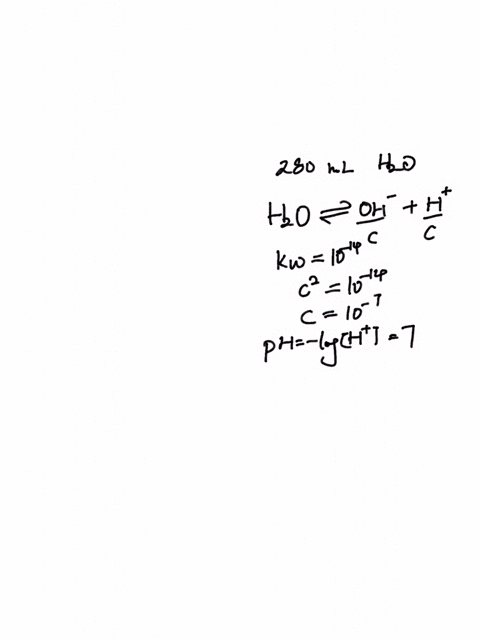 280 mL H₂O
H₂O ⇌ OH⁻ + H⁺
C C
Kw = 10⁻¹⁴
C² = 10⁻¹⁴
C = 10⁻⁷
pH = -log[H⁺] = 7